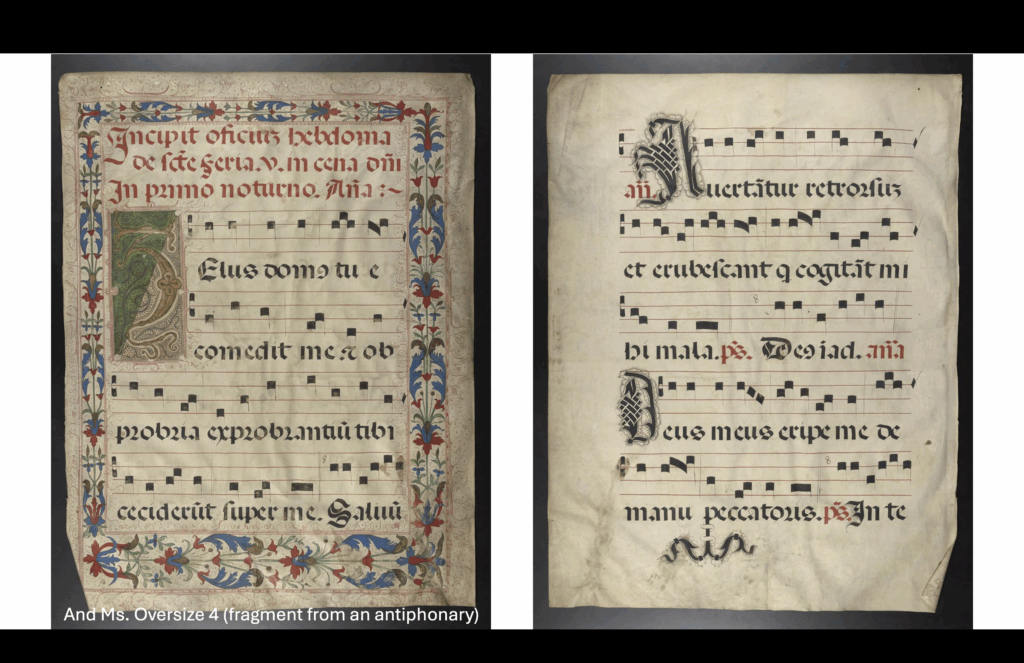 Incipit oficiuz hebdoma
de scte feria.v. in cena dni
In primo noturno. Aña:~
Zelus domꝰ tu e
comedit me ⁊ ob
probria exprobrantiū tibi
8
ceciderūt super me. Saluū
And Ms. Oversize 4 (fragment from an antiphonary)
añ. Auertātur retrorsuz
et erubescant q cogitāt mi
8
hi mala. ps. Deꝰ ī ad. aña
Deus meus eripe me de
8
manu peccatoris. ps. In te